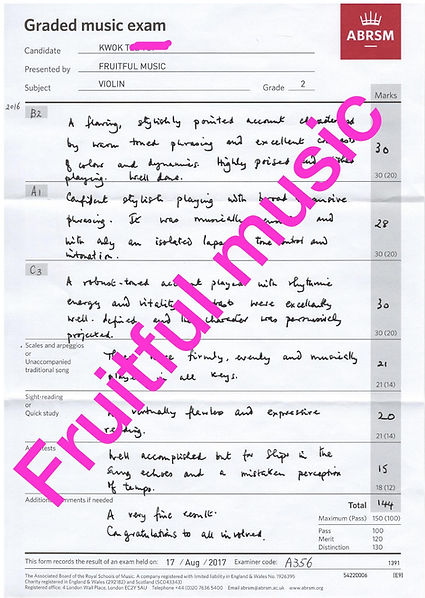 Graded music exam
ABRSM
Candidate KWOK
Presented by FRUITFUL MUSIC
Subject VIOLIN Grade 2
Marks
2016
B2
A flowing, stylishly pointed account characterised
by warm toned phrasing and excellent contrasts
of colour and dynamics. Highly poised and
playing. Well done.
30
30 (20)
A1
Confident stylish playing with broad expansive
phrasing. It was musically and
with only an isolated lapse tone control and
intonation.
28
30 (20)
C3
A robust-toned account played with rhythmic
energy and vitality were excellently
well-defined and the character was persuasively
projected.
30
30 (20)
Scales and arpeggios
or
Unaccompanied
traditional song
These were firmly, evenly and musically
played in all keys.
21
21 (14)
Sight-reading
or
Quick study
A virtually flawless and expressive
reading.
20
21 (14)
tests
Well accomplished but for slips in the
sung echoes and a mistaken perception
of tempo.
15
18 (12)
Additional comments if needed
A very fine result.
Congratulations to all involved.
Total 144
Maximum (Pass) 150 (100)
Pass 100
Merit 120
Distinction 130
This form records the result of an exam held on: 17 / Aug / 2017 Examiner code: A356 1391
The Associated Board of the Royal Schools of Music. A company registered with limited liability in England & Wales No. 1926395
54220006 [E9]
Charity registered in England & Wales (292182) and Scotland (SC043343)
Registered office: 4 London Wall Place, London EC2Y 5AU Telephone +44 (0)20 7636 5400 Email abrsm@abrsm.ac.uk www.abrsm.org
Fruitful music